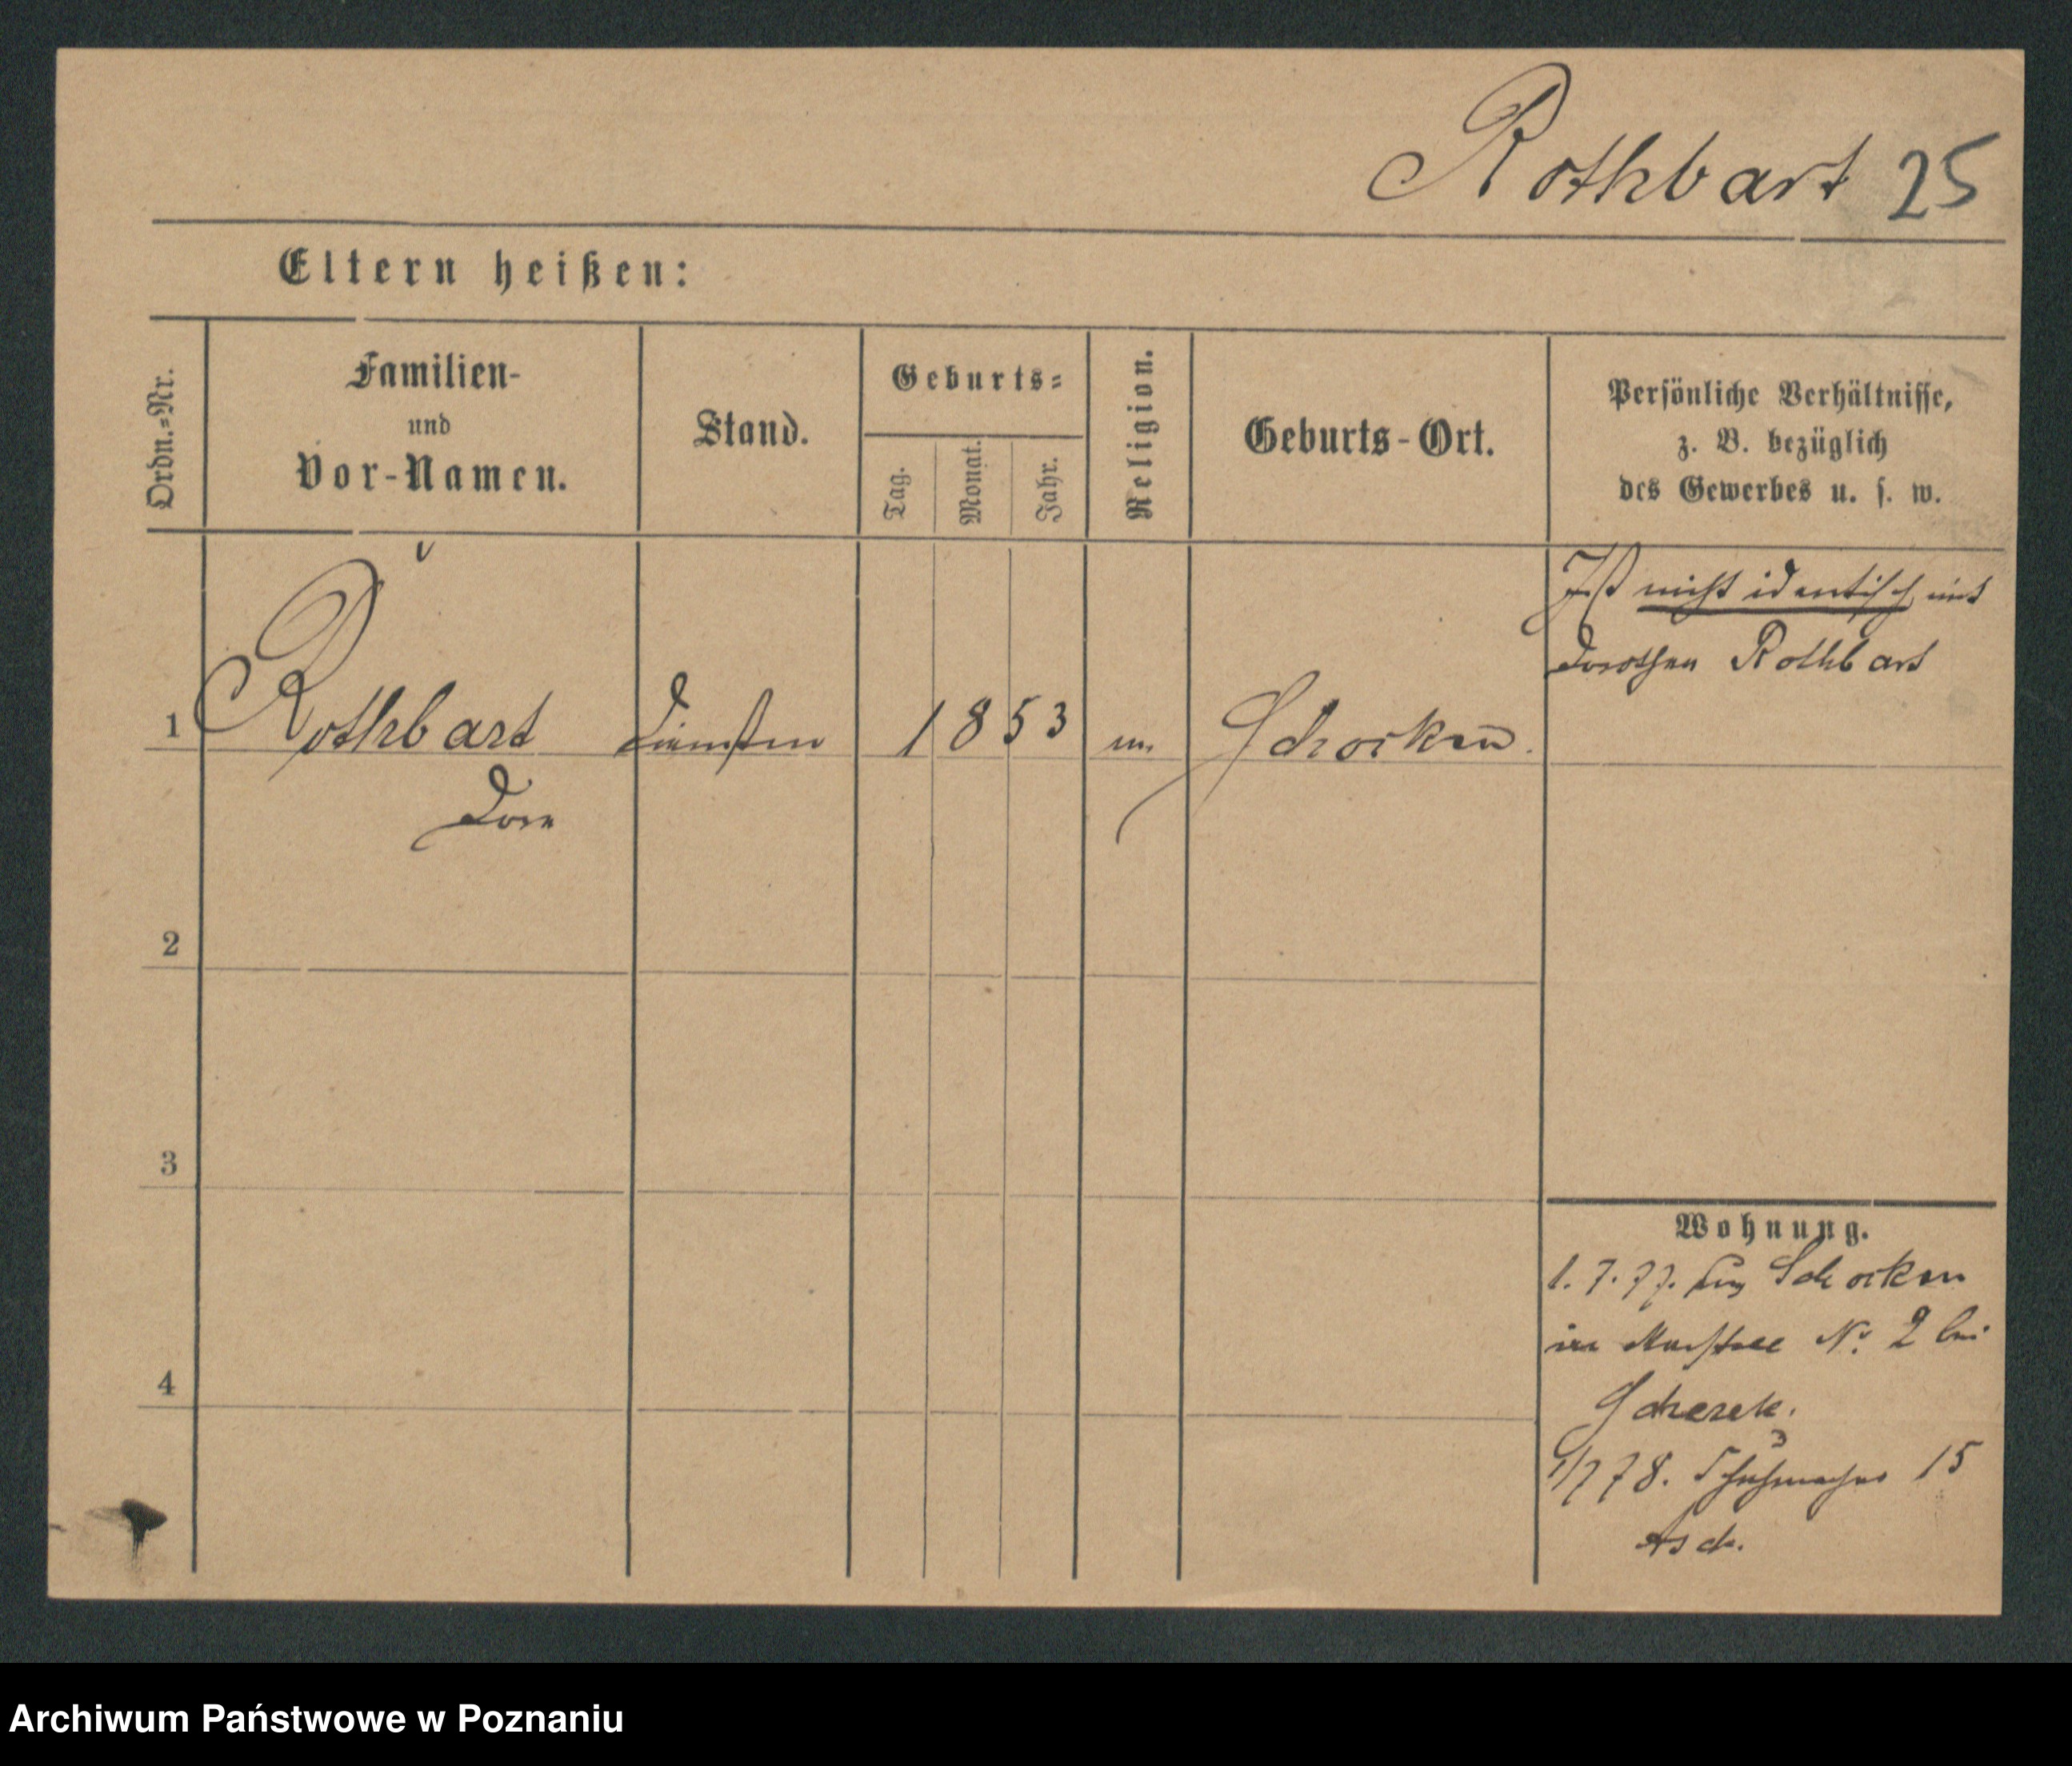 Rothbart 25
Eltern heißen:
Ordn.=Nr.
Familien-
und
Vor-Namen.
Stand.
Geburts=
Tag.
Monat.
Jahr.
Religion.
Geburts-Ort.
Persönliche Verhältnisse,
z. B. bezüglich
des Gewerbes u. s. w.
Ist nicht identisch mit
Dorothea Rothbart
1 Rothbart 1853 m. Schocken.
Dora
2
3
4
Wohnung.
1. 7. 77. Schocken
No 2 bei
1/7 78. Schuhmacher 15
Asch.
Archiwum Państwowe w Poznaniu